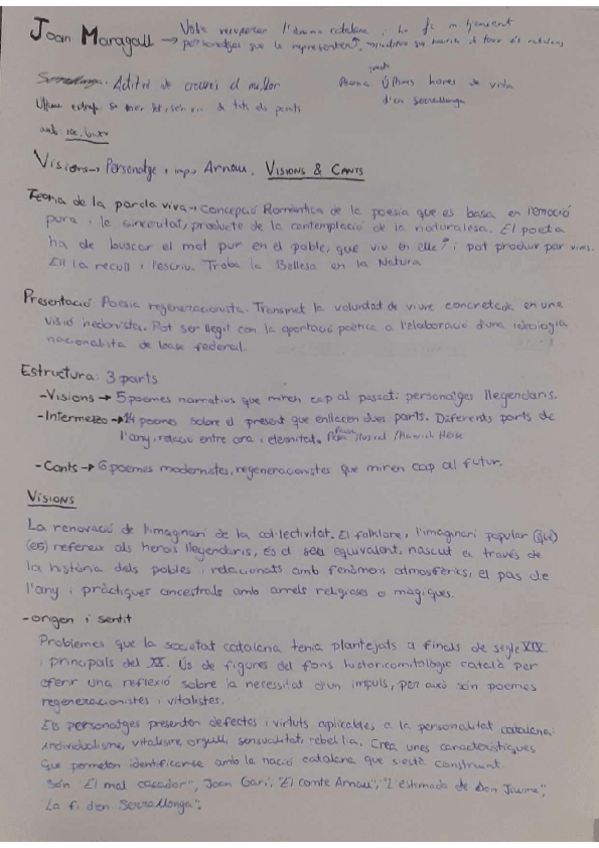 Joan Maragall → Volia recuperar l'ànima catalana i ho fa mitjançant
personatges que la representen
Serrallonga. Actitud de creure's el millor
Poema Últimes hores de vida
d'en Serrallonga
Última estrof
Visions → Personatge + imp Arnau. VISIONS & CANTS
Teoria de la paraula viva → Concepció Romàntica de la poesia que es basa en l'emoció
pura i la sinceritat, producte de la contemplació de la naturalesa. El poeta
ha de buscar el mot pur en el poble, que viu en elle i pot produir por vives.
Ell la recull i l'escriu. Troba la Bellesa en la Natura
Presentació: Poesia regeneracionista. Transmet la voluntad de viure concretada en una
visió hedonista. Pot ser llegit con la aportació poètica a l'elaboració d'una ideologia
nacionalista de base federal.
Estructura: 3 parts
- Visions → 5 poemes narratius que miren cap al passat: personatges llegendaris.
- Intermezzo → 14 poemes sobre el present que enllacen dues parts. Diferents parts de
l'any, relació entre ara i eternitat. Musical / Heinrich Heine
- Cants → 6 poemes modernistes, regeneracionistes que miren cap al futur.
VISIONS
La renovació de l'imaginari de la col·lectivitat. El folklore, i l'imaginari popular (qui)
(es) refereix als herois llegendaris, és el seu equivalent, nascut a través de
la història dels pobles i relacionats amb fenòmens atmosfèrics, el pas de
l'any i pràctiques ancestrals amb arrels religioses o màgiques.
- origen i sentit
Problemes que la societat catalana tenia plantejats a finals de segle XIX
i principals del XX. Ús de figures del fons historicomitològic català per
oferir una reflexió sobre la necessitat d'un impuls, per això són poemes
regeneracionistes i vitalistes.
Els personatges presenten defectes i virtuts aplicables a la personalitat catalana:
individualisme, vitalisme orgull, sensualitat, rebel·lia. Crea unes característiques
que permeten identificar-se amb la nació catalana que s'està construint.
Són "El mal caçador", Joan Garí, "El comte Arnau", "L'estimada de Don Jaume",
La fi d'en Serrallonga".